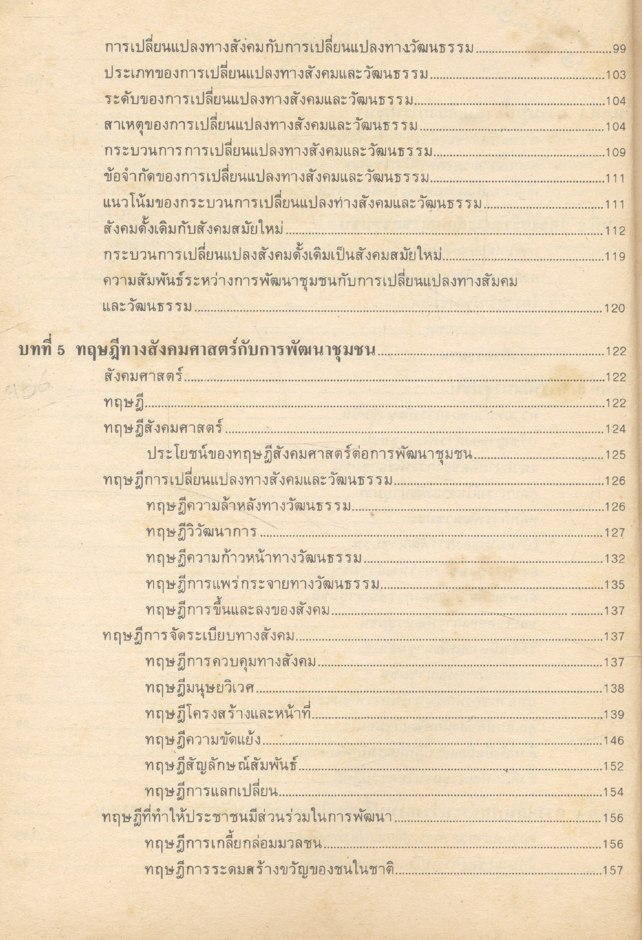 การเปลี่ยนแปลงทางสังคมกับการเปลี่ยนแปลงทางวัฒนธรรม 99
ประเภทของการเปลี่ยนแปลงทางสังคมและวัฒนธรรม 103
ระดับของการเปลี่ยนแปลงทางสังคมและวัฒนธรรม 104
สาเหตุของการเปลี่ยนแปลงทางสังคมและวัฒนธรรม 104
กระบวนการการเปลี่ยนแปลงทางสังคมและวัฒนธรรม 109
ข้อจำกัดของการเปลี่ยนแปลงทางสังคมและวัฒนธรรม 111
แนวโน้มของกระบวนการเปลี่ยนแปลงทางสังคมและวัฒนธรรม 111
สังคมดั้งเดิมกับสังคมสมัยใหม่ 112
กระบวนการเปลี่ยนแปลงสังคมดั้งเดิมเป็นสังคมสมัยใหม่ 119
ความสัมพันธ์ระหว่างการพัฒนาชุมชนกับการเปลี่ยนแปลงทางสัมคม
และวัฒนธรรม 120
บทที่ 5 ทฤษฎีทางสังคมศาสตร์กับการพัฒนาชุมชน 122
สังคมศาสตร์ 122
ทฤษฎี 122
ทฤษฎีสังคมศาสตร์ 124
ประโยชน์ของทฤษฎีสังคมศาสตร์ต่อการพัฒนาชุมชน 125
ทฤษฎีการเปลี่ยนแปลงทางสังคมและวัฒนธรรม 126
ทฤษฎีความล้าหลังทางวัฒนธรรม 126
ทฤษฎีวิวัฒนาการ 127
ทฤษฎีความก้าวหน้าทางวัฒนธรรม 132
ทฤษฎีการแพร่กระจายทางวัฒนธรรม 135
ทฤษฎีการขึ้นและลงของสังคม 137
ทฤษฎีการจัดระเบียบทางสังคม 137
ทฤษฎีการควบคุมทางสังคม 137
ทฤษฎีมนุษยวิเวศ 138
ทฤษฎีโครงสร้างและหน้าที่ 139
ทฤษฎีความขัดแย้ง 146
ทฤษฎีสัญลักษณ์สัมพันธ์ 152
ทฤษฎีการแลกเปลี่ยน 154
ทฤษฎีที่ทำให้ประชาชนมีส่วนร่วมในการพัฒนา 156
ทฤษฎีการเกลี้ยกล่อมมวลชน 156
ทฤษฎีการระดมสร้างขวัญของชนในชาติ 157